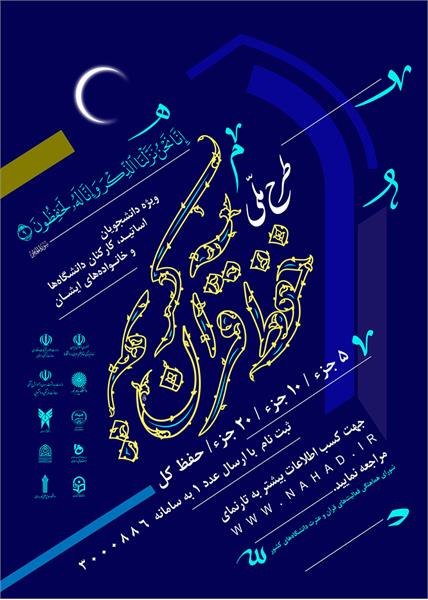 إِنَّا نَحْنُ نَزَّلْنَا الذِّكْرَ وَإِنَّا لَهُ لَحَافِظُونَ
طرح ملّی
حفظ قرآن کریم
ویژه دانشجویان
اساتید، کارکنان دانشگاه‌ها
و خانواده‌های ایشـان
۵ جزء / ۱۰ جزء / ۲۰ جزء / حفظ کل
ثبت نام با ارسال عدد ۱ به سامانه ۳۰۰۰۸۸۶
جهت کسب اطلاعات بیشتر به تارنمای
WWW.NAHAD.IR
مراجعه نمایید.
شورای هماهنگی فعالیت‌های قرآن و عترت دانشگاه‌های کشور